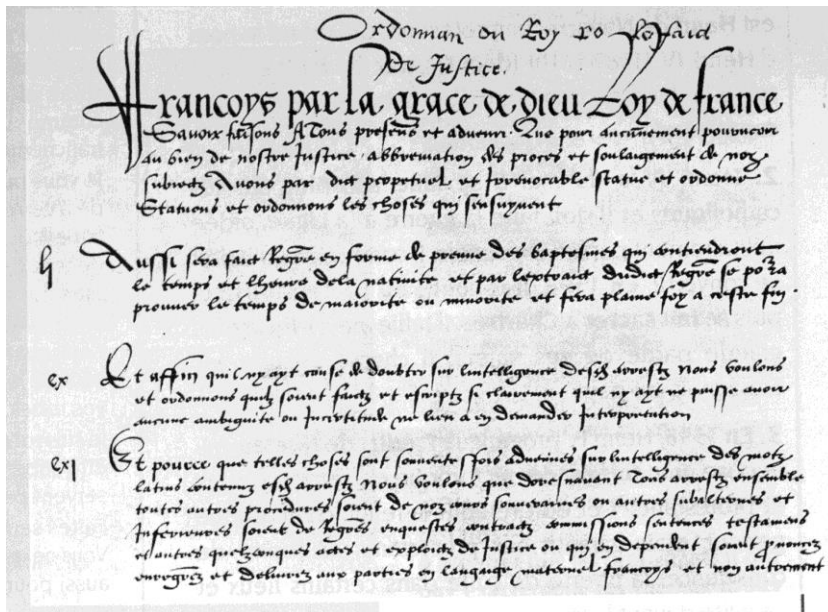 Ordonnan du Roy le faict
De Justice.
Francoys par la grace de dieu Roy de france
Scavoir faisons A Tous presens et advenir. Que pour aucunement pourveoir
au bien de nostre Justice. abbreviation des proces et soulaigement de noz
subiectz Avons par edict perpetuel et Irrevocable statue et ordonne
Statuons et ordonnons les choses qui sensuyvent
lj Aussi sera faict Regre en forme de preuve des baptesmes qui contiendront
le temps et lheure dela nativite et par lextraict dudict Regre se porra
prouver le temps de maiorite ou minorite et fera plaine foy a ceste fin.
cx Et affin quil ny ayt cause de doubter sur lintelligence desd arrestz Nous voulons
et ordonnons quilz soient faictz et escriptz si clairement quil ny ayt ne puisse avoir
aucune ambiguite ou Incertitude ne lieu a en demander Interpretation
cxj Et pource que telles choses sont souventesfois advenues sur lintelligence des motz
latins contenuz esd arrestz Nous voulons que doresnavant Tous arrestz ensemble
toutes autres procedures soient de noz cours souveraines ou autres subalternes et
Inferieures soient de Regres enquestes contractz commissions sentences testamens
et autres quelzconques actes et exploictz de Justice ou qui en dependent soient prononcez
enregrez et delivrez aux parties en langaige maternel francoys et non autrement